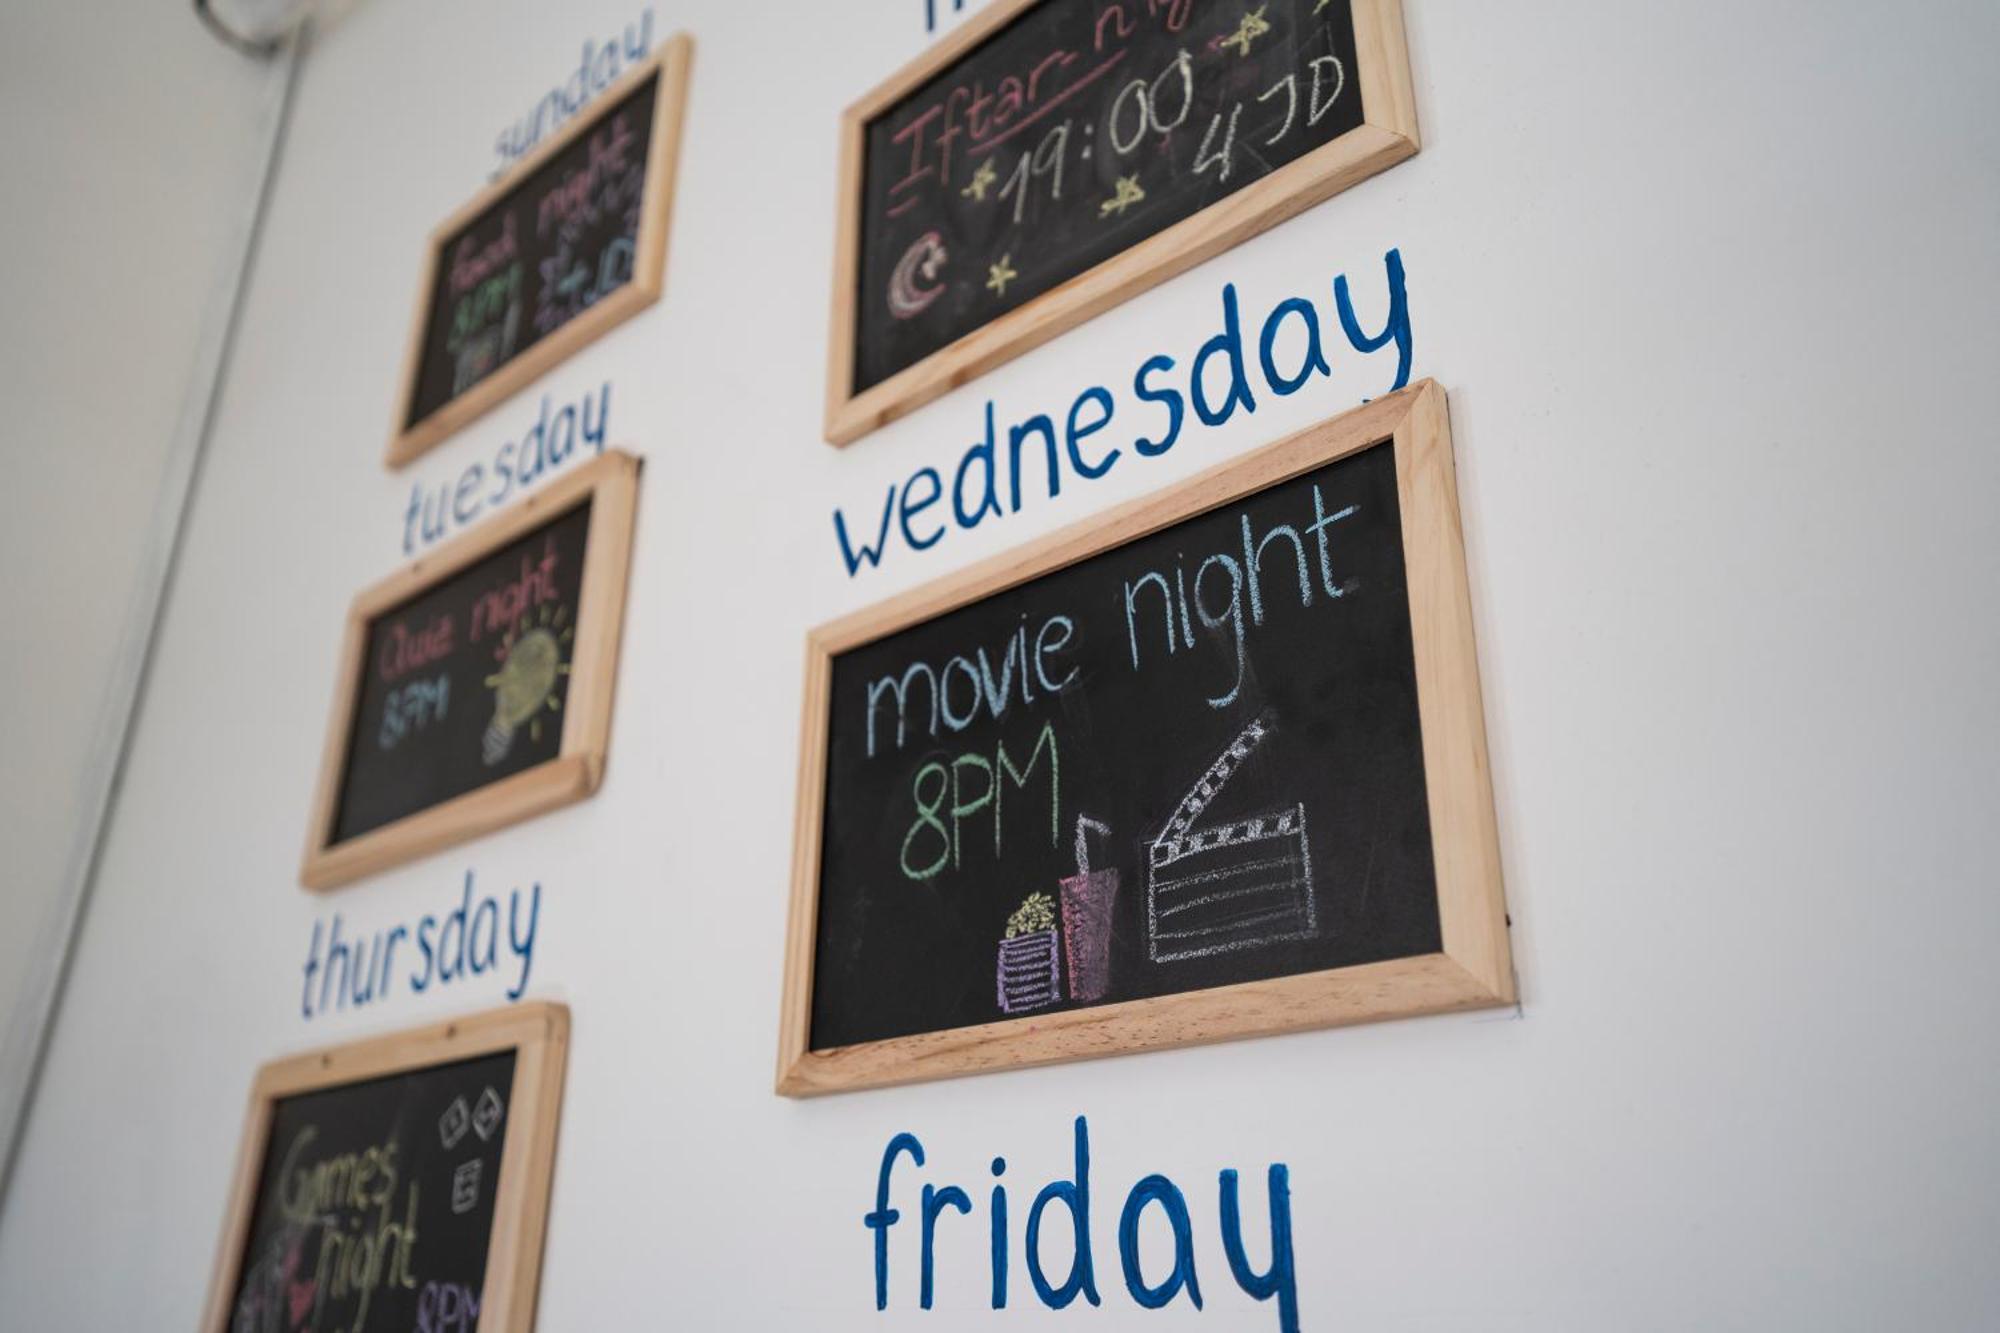 sunday
food night
8PM
4 JD
Iftar-nig
19:00
4 JD
tuesday
Quiz night
8PM
wednesday
movie night
8PM
thursday
Games
night
8PM
friday